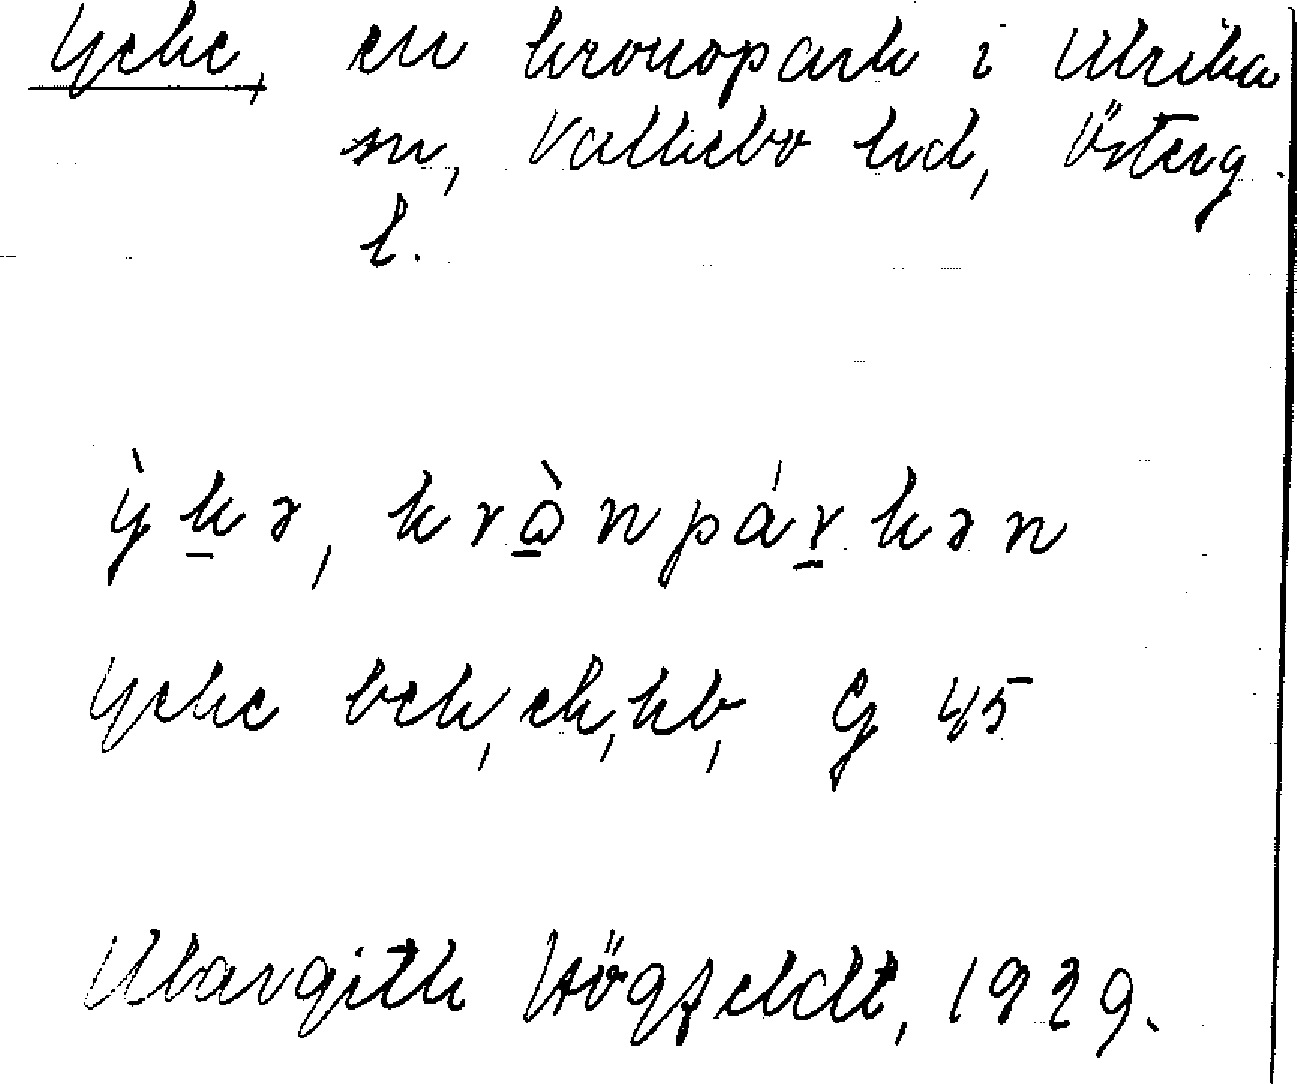 Ycke, en kronopark i Ulrika
sn, Vallebo hd, Österg.
l.
ỳkə, krò̲npár̲kən
Ycke bek, ek, kb, G 45
Margith Högfeldt, 1929.